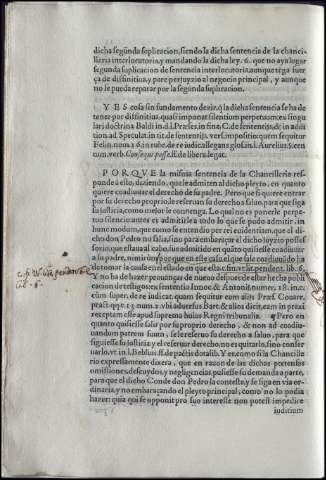 dicha segũda suplicacion, siendo la dicha sentencia de la chanci-
lleria interlocutoria, y mandando la dicha ley. 6. que no aya lugar
segunda suplicacion de sentencia interlocutoria aunque tẽga fuer
ça de disfinitiua, y pare perjuyzio al negocio principal, y aunque
no se pueda reparar por la segunda suplicacion.
Y ES cosa sin fundamento dezir, q̃ la dicha sentencia se ha de
tener por diffinitiua, quasi imponat silentium perpetuum ex singu
lari doctrina Baldi in d. l. Præses in fine, C. de sententijs, & in addition
ad Speculat. in tit. de
Felin. num. 16. in rub. de re iudic.
tum. verb. Consequi posse. ff. de liberis legat.
PORQVE la misma sentencia de la Chancilleria res-
ponde à ello, diziendo, que le admiten al dicho pleyto, en quanto
quiere coadiuuar el derecho de su padre. Pero que si quiere entrar
por su derecho proprio le reseruan su derecho a saluo, para que siga
su justicia, como mejor le conuenga. Lo qual no es ponerle perpe-
tuo silencio antes es admitirle a todo lo que se pudo admitir, in
hunc modum, que como se entendio per rei euidentiam, que el di
cho don Pedro no salia, ni para embaraçar el dicho juyzio posses
sorio, que estaua al cabo, fue admitido en quãto quisiesse coadiuuar
a su padre,
de tomar la causa en el estado in que ella està,
Y no ha de hazer prouanças de nueuo despues de estar hecha publi
cacion de testigos, ex sententia Innoc. & Antonij numer. 18. in c.
cum super. de re iudicat. quam sequitur cum alijs Præs. Couarr.
pract. qq. c. 13. num. 2. vbi aduersus Bart. & alios dicit, eam in praxi
receptam esse apud suprema huius Regni tribunalia. Pero en
quanto quisiesse salir por su proprio derecho, & non ad coadiu-
uandum patrem suum, se le reseruo su derecho a saluo, para que
siguiesse su justicia, y el reseruar derecho, no es quitarlo, sino conser-
uarlo, vt in l. Bebius ff. de pactis dotalib. Y es, como si la Chancille
ria expressamente dixera, que en razon de las dichas pretensas
omissiones, descuydos, y negligencias pusiesse su demanda a parte,
para que el dicho Conde don Pedro la conteste, y se siga en via or-
dinaria, y no embaraçando el pleyto principal, como no lo podia
hazer: quia qui se opponit pro suo interesse non potest impedire
iuditium